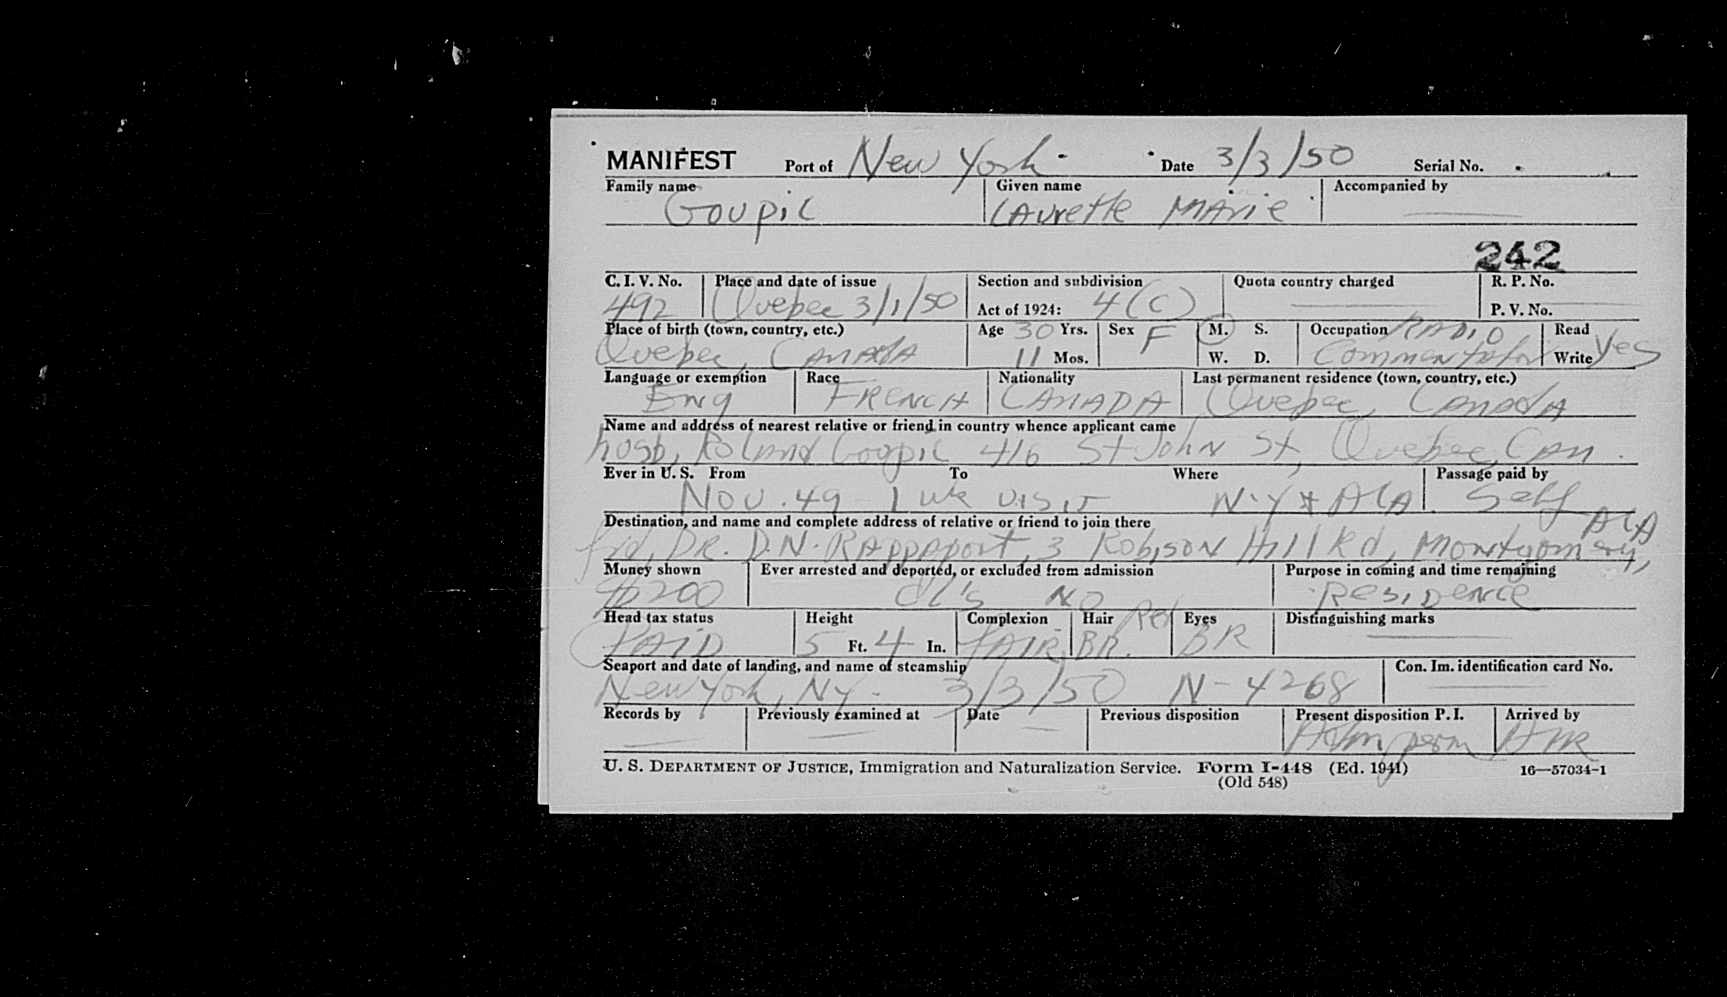 MANIFEST Port of New York Date 3/3/50 Serial No.
Family name Given name Accompanied by
Goupil Laurette Marie
242
C. I. V. No. Place and date of issue Section and subdivision Quota country charged R. P. No.
492 Quebec 3/1/50 Act of 1924: 4(C) P. V. No.
Place of birth (town, country, etc.) Age 30 Yrs. Sex F M. S. Occupation RADIO Read
Quebec, CANADA 11 Mos. W. D. Commentator Write Yes
Language or exemption Race Nationality Last permanent residence (town, country, etc.)
Eng FRENCH CANADA Quebec, CANADA
Name and address of nearest relative or friend in country whence applicant came
husb, Roland Goupil 416 St John St, Quebec, Can.
Ever in U. S. From To Where Passage paid by
Nov. 49 1 wk visit N.Y & ALA. Self
Destination, and name and complete address of relative or friend to join there ALA
frd, DR. D.N. Rappaport, 3 Robison Hill Rd, Montgomery,
Money shown Ever arrested and deported, or excluded from admission Purpose in coming and time remaining
$200 NO Residence
Head tax status Height Complexion Hair Red Eyes Distinguishing marks
PAID 5 Ft. 4 In. FAIR BR. BR
Seaport and date of landing, and name of steamship Con. Im. identification card No.
New York, NY. 3/3/50 N-4268
Records by Previously examined at Date Previous disposition Present disposition P. I. Arrived by
Adm perm AIR
U. S. DEPARTMENT OF JUSTICE, Immigration and Naturalization Service. Form I-448 (Ed. 1941) 16—57034-1
(Old 548)